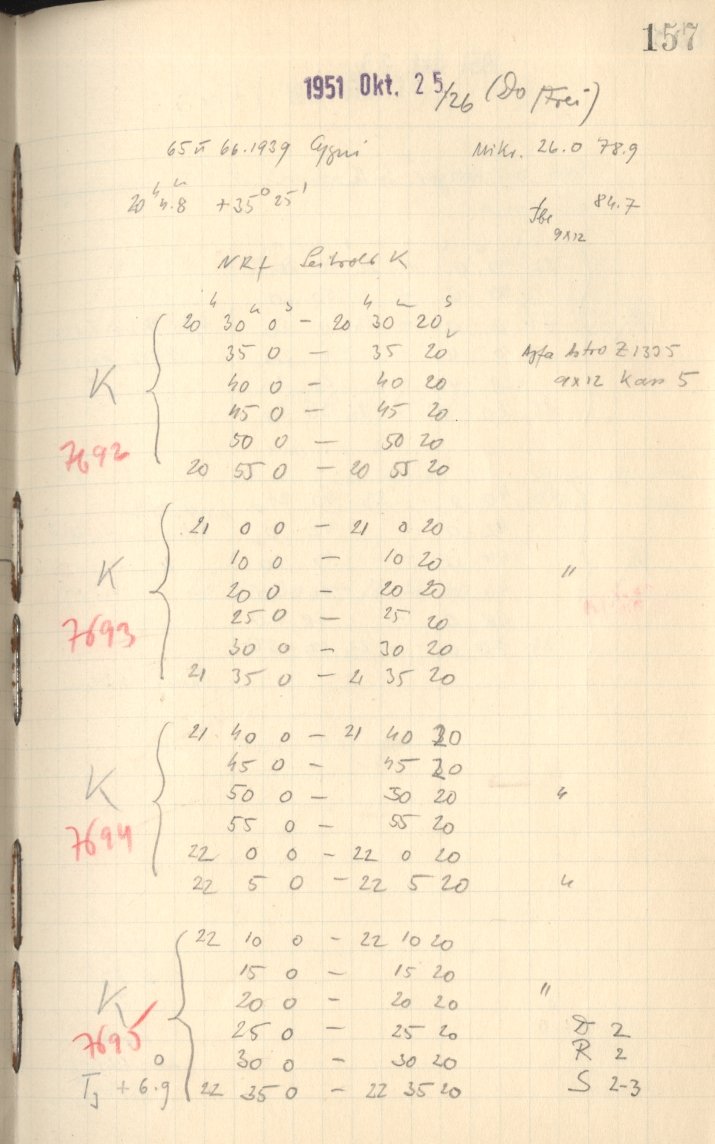 157
1951 Okt. 25/26 (Do/Frei)
65 66.1939 Cygni Mikr. 26.0 78.9
20ʰ 4.8ᵐ +35° 25' 84.7
9x12
NRf K
20ʰ 30ᵐ 0ˢ – 20ʰ 30ᵐ 20ˢ
35 0 – 35 20 Agfa Astro Z1335
K 40 0 – 40 20 9x12 Kass 5
45 0 – 45 20
7692 50 0 – 50 20
20 55 0 – 20 55 20
21 0 0 – 21 0 20
K 10 0 – 10 20 "
20 0 – 20 20
7693 25 0 – 25 20
30 0 – 30 20
21 35 0 – 21 35 20
21 40 0 – 21 40 20
45 0 – 45 20
K 50 0 – 50 20 "
7694 55 0 – 55 20
22 0 0 – 22 0 20
22 5 0 – 22 5 20 "
22 10 0 – 22 10 20
15 0 – 15 20 "
K 20 0 – 20 20
7695 25 0 – 25 20 D 2
30 0 – 30 20 R 2
TJ + 6.9° 22 35 0 – 22 35 20 S 2-3